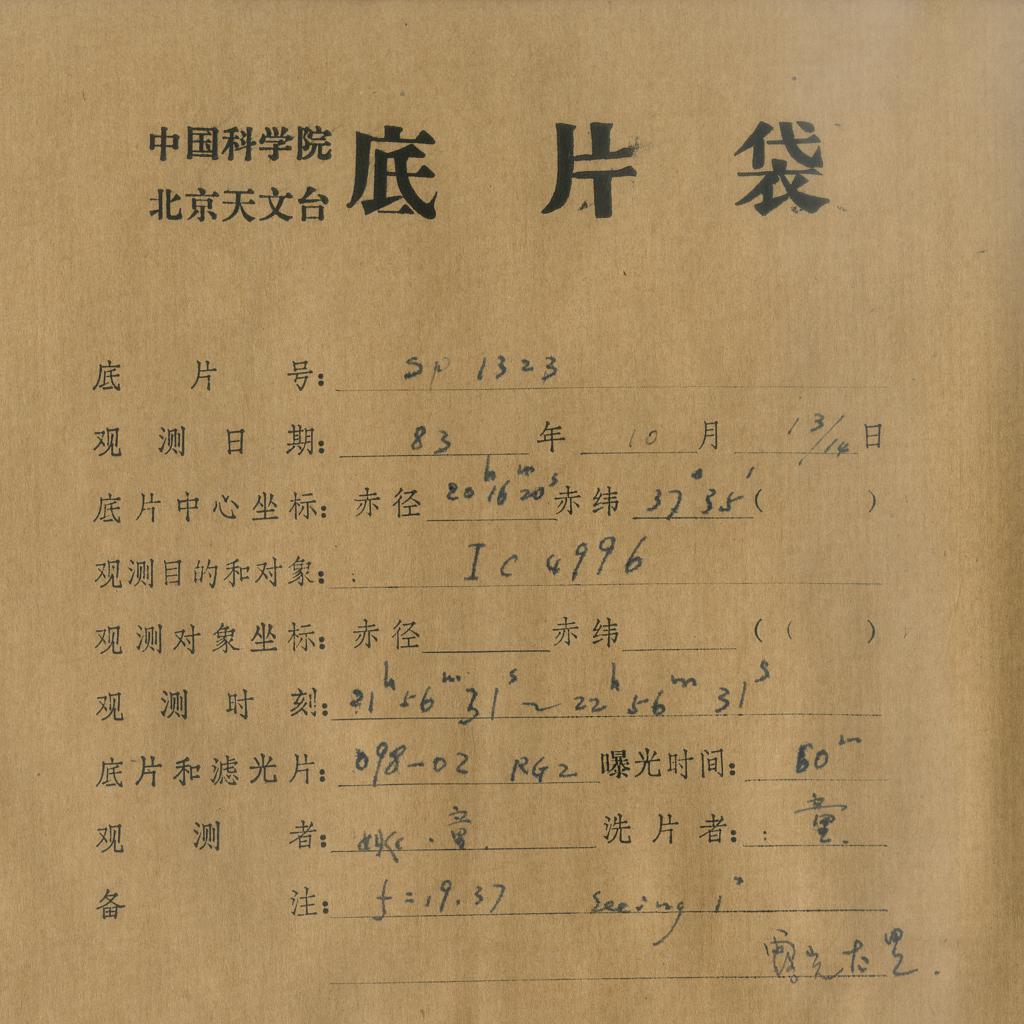 中国科学院
北京天文台 底片袋
底片号: SP 1323
观测日期: 83 年 10 月 13/14 日
底片中心坐标: 赤径 20h 16m 20s 赤纬 37° 35′ ( )
观测目的和对象: IC 4996
观测对象坐标: 赤径 赤纬 ( )
观测时刻: 21h 56m 31s ~ 22h 56m 31s
底片和滤光片: 098-02 RG2 曝光时间: 60m
观测者: 童 洗片者: 童
备注: f=19.37 seeing 1"